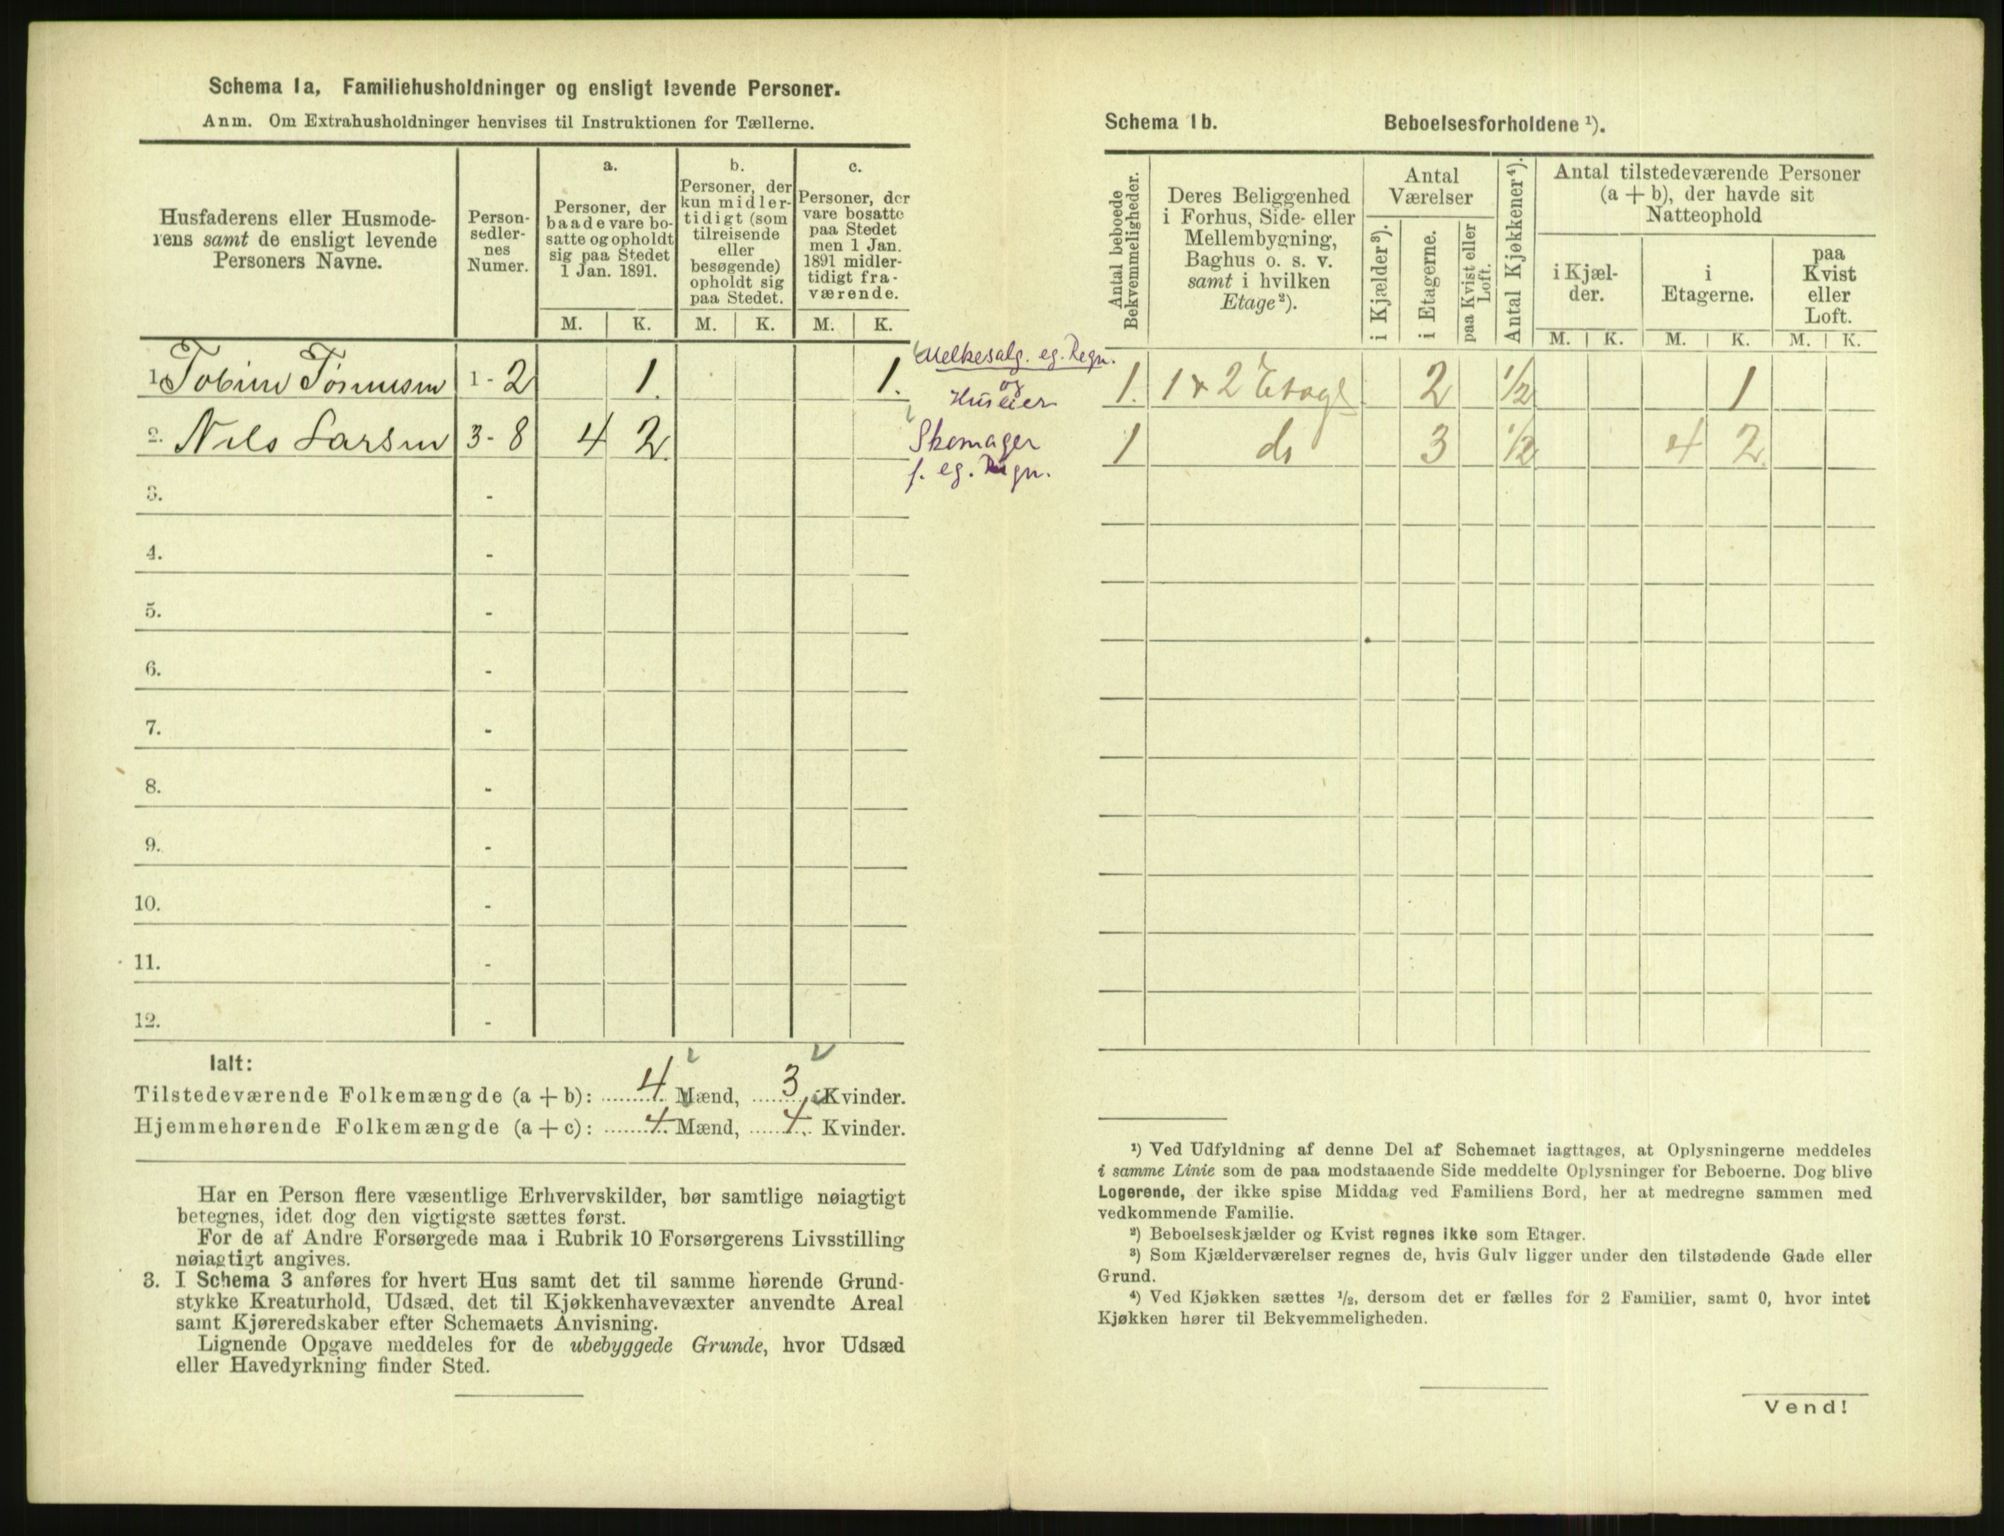 Schema 1a, Familiehusholdninger og ensligt levende Personer.
Anm. Om Extrahusholdninger henvises til Instruktionen for Tællerne.
Husfaderens eller Husmode-
rens samt de ensligt levende
Personers Navne.
Person-
sedler-
nes
Numer.
a.
Personer, der
baade vare bo-
satte og opholdt
sig paa Stedet
1 Jan. 1891.
b.
Personer, der
kun midler-
tidigt (som
tilreisende
eller
besøgende)
opholdt sig
paa Stedet.
c.
Personer, der
vare bosatte
paa Stedet
men 1 Jan.
1891 midler-
tidigt fra-
værende.
M. K. M. K. M. K.
1. 1 - 2 1. 1.
2. Nils Larsen 3 - 8 4 2
3. -
4. -
5. -
6. -
7. -
8. -
9. -
10. -
11. -
12. -
Melkesalg. eg. Regn.
og
Huseier
Skomager
f. eg. Regn.
Ialt:
Tilstedeværende Folkemængde (a + b): 4 Mænd, 3 Kvinder.
Hjemmehørende Folkemængde (a + c): 4 Mænd, 4 Kvinder.
Har en Person flere væsentlige Erhvervskilder, bør samtlige nøiagtigt
betegnes, idet dog den vigtigste sættes først.
For de af Andre Forsørgede maa i Rubrik 10 Forsørgerens Livsstilling
nøiagtigt angives.
3. I Schema 3 anføres for hvert Hus samt det til samme hørende Grund-
stykke Kreaturhold, Udsæd, det til Kjøkkenhavevæxter anvendte Areal
samt Kjøreredskaber efter Schemaets Anvisning.
Lignende Opgave meddeles for de ubebyggede Grunde, hvor Udsæd
eller Havedyrkning finder Sted.
Schema 1b. Beboelsesforholdene ¹).
Antal beboede
Bekvemmeligheder.
Deres Beliggenhed
i Forhus, Side- eller
Mellembygning,
Baghus o. s. v.
samt i hvilken
Etage²).
Antal
Værelser
i Kjælder³).
i Etagerne.
paa Kvist eller
Loft.
Antal Kjøkkener⁴).
Antal tilstedeværende Personer
(a + b), der havde sit
Natteophold
i Kjæl-
der.
i
Etagerne.
paa
Kvist
eller
Loft.
M. K. M. K. M. K.
1. 1 + 2 Etage 2 1/2 1
1 do 3 1/2 4 2
¹) Ved Udfyldning af denne Del af Schemaet iagttages, at Oplysningerne meddeles
i samme Linie som de paa modstaaende Side meddelte Oplysninger for Beboerne. Dog blive
Logerende, der ikke spise Middag ved Familiens Bord, her at medregne sammen med
vedkommende Familie.
²) Beboelseskjælder og Kvist regnes ikke som Etager.
³) Som Kjælderværelser regnes de, hvis Gulv ligger under den tilstødende Gade eller
Grund.
⁴) Ved Kjøkken sættes ½, dersom det er fælles for 2 Familier, samt 0, hvor intet
Kjøkken hører til Bekvemmeligheden.
Vend!